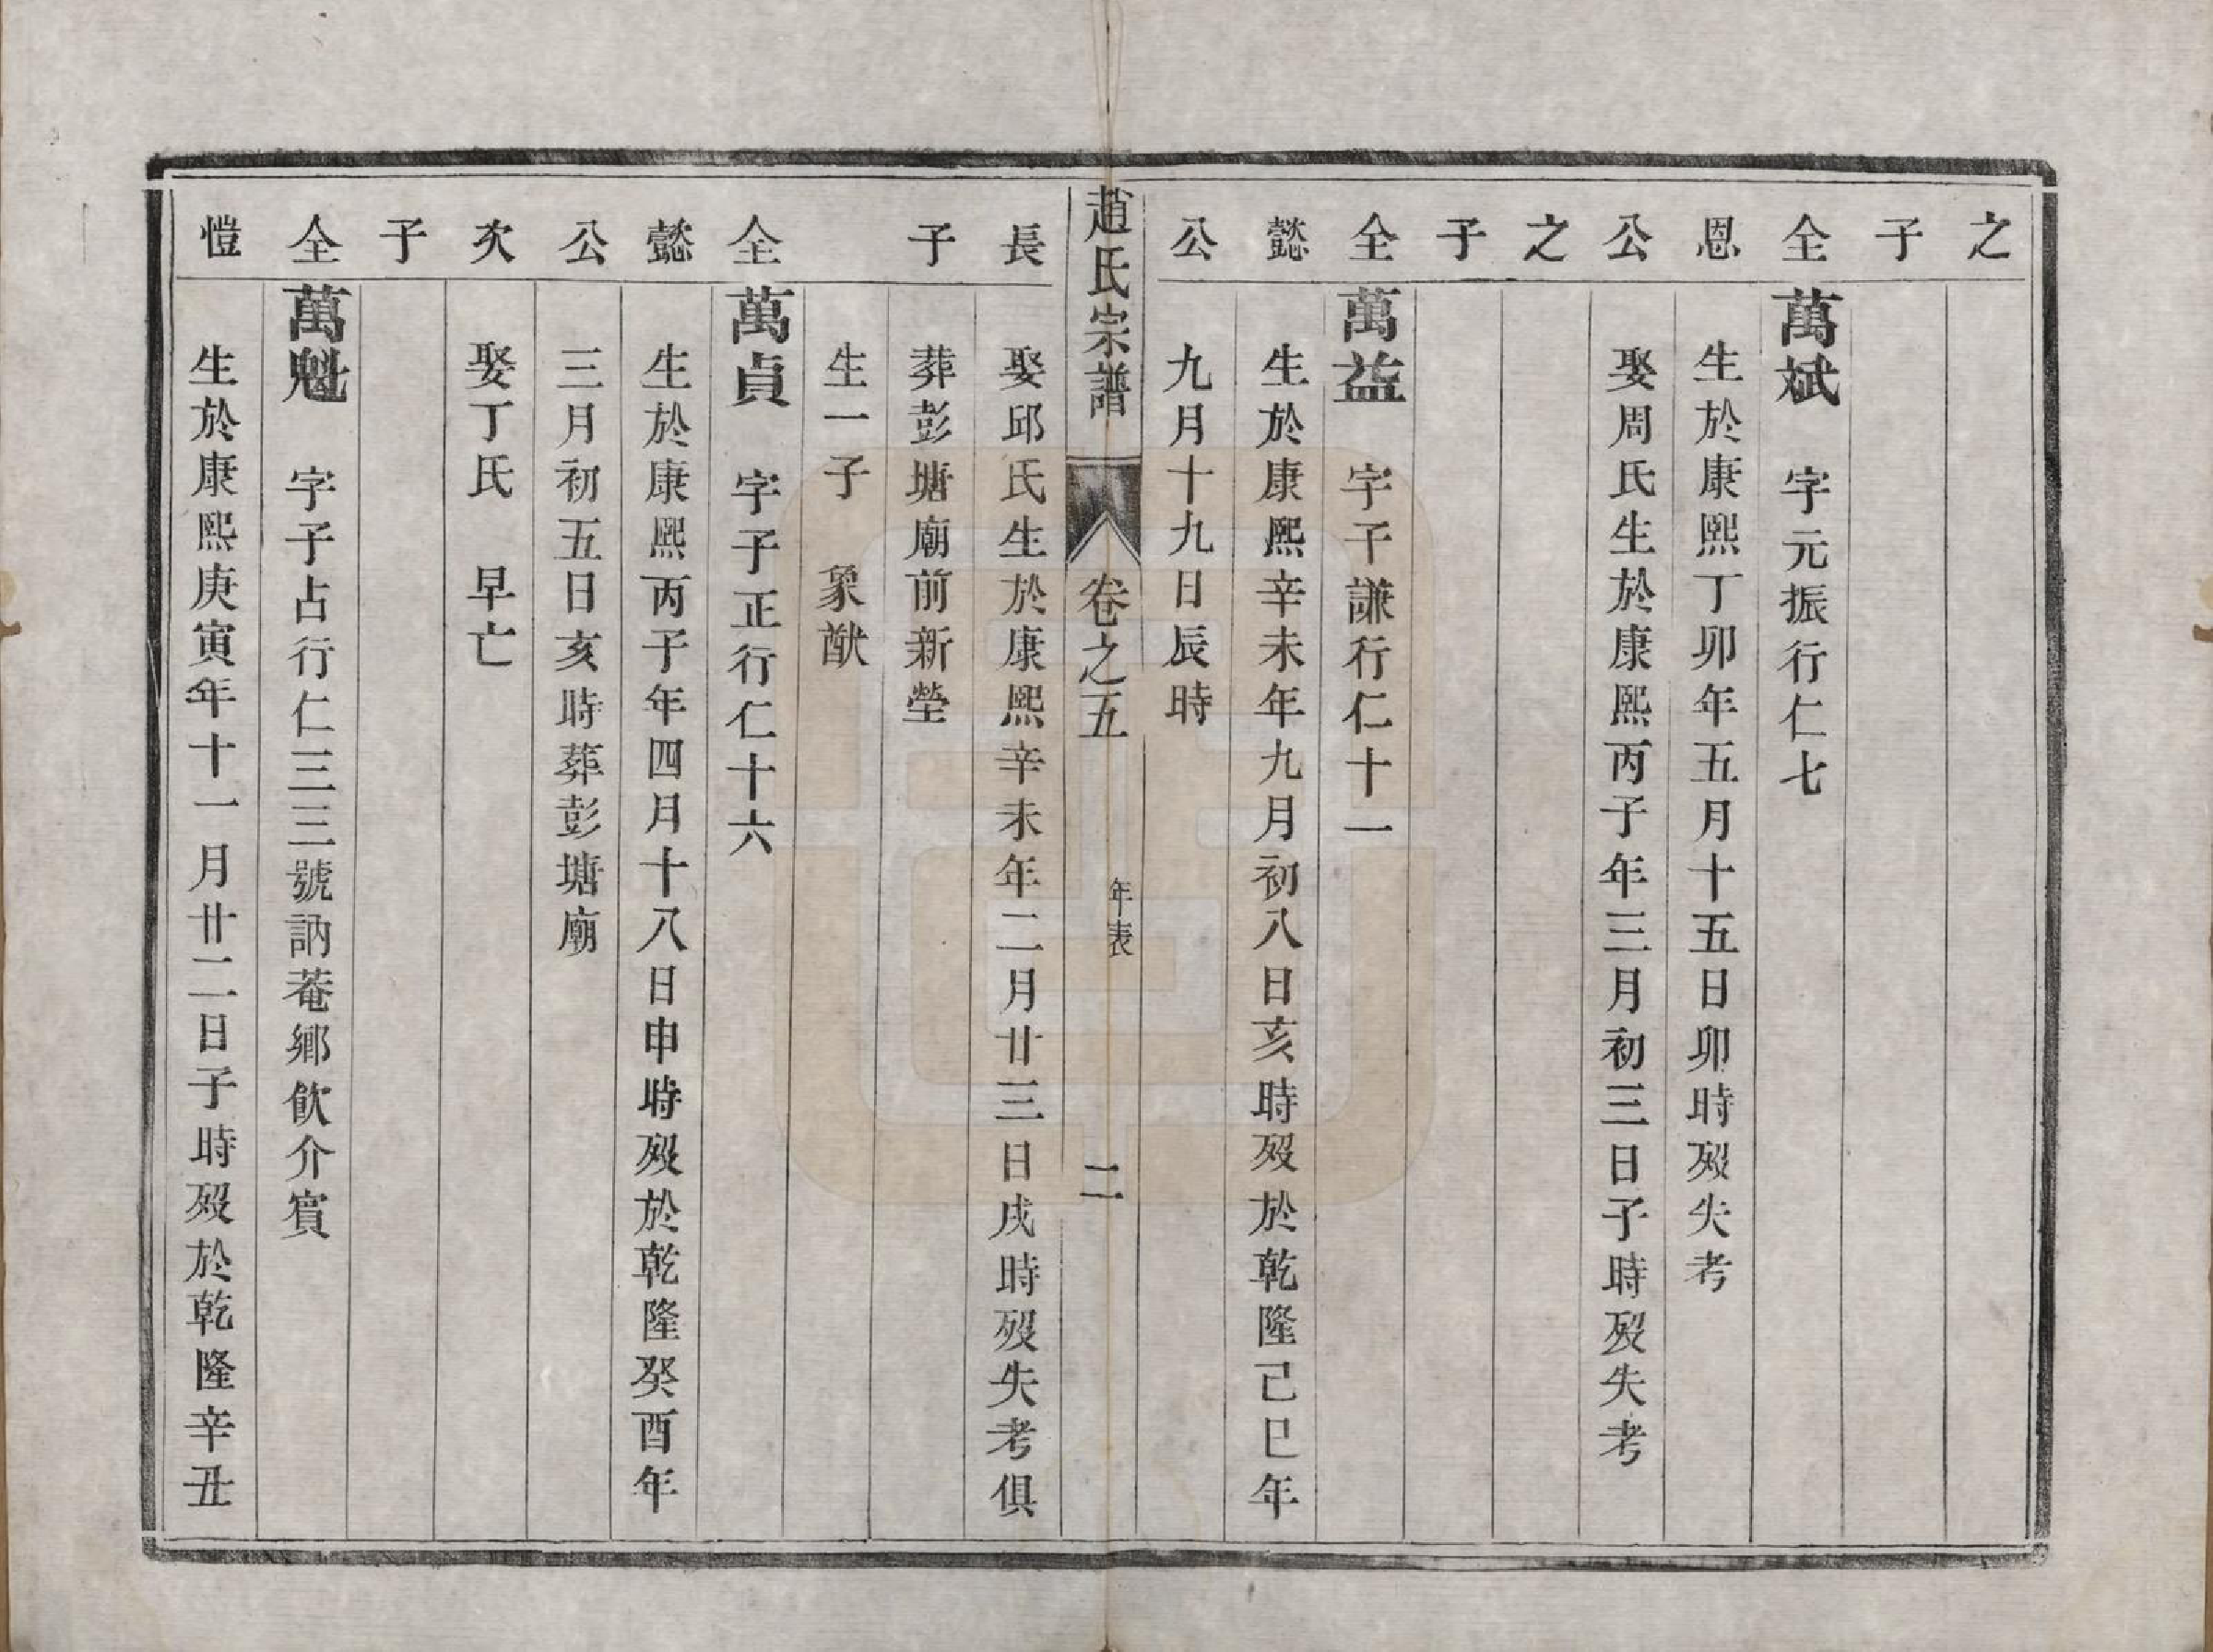 之
子
全 萬斌 字元振行仁七
恩 生於康熙丁卯年五月十五日卯時歿失考
公 娶周氏生於康熙丙子年三月初三日子時歿失考
之
子
全 萬益 字子謙行仁十一
懿 生於康熙辛未年九月初八日亥時歿於乾隆己巳年
公 九月十九日辰時
趙氏宗譜 卷之五 年表 二
長 娶邱氏生於康熙辛未年二月廿三日戌時歿失考俱
子 葬彭塘廟前新塋
生一子 象猷
全 萬貞 字子正行仁十六
懿 生於康熙丙子年四月十八日申時歿於乾隆癸酉年
公 三月初五日亥時葬彭塘廟
次 娶丁氏 早亡
子
全 萬魁 字子占行仁三三號訥菴鄉飲介賓
愷 生於康熙庚寅年十一月廿二日子時歿於乾隆辛丑